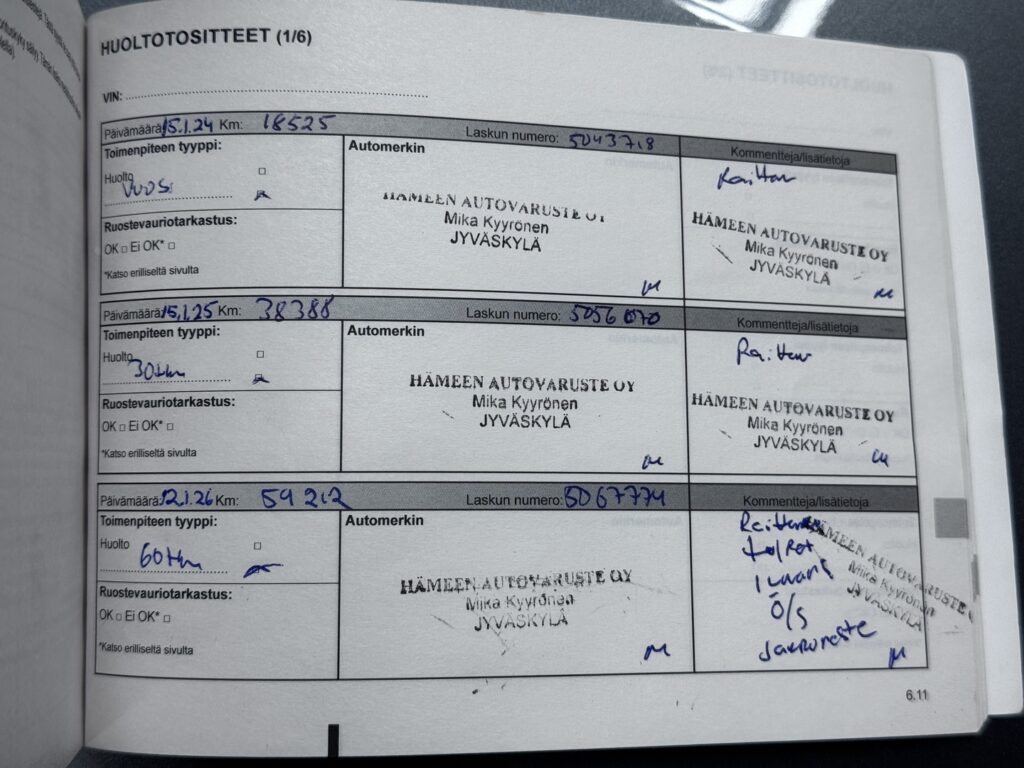 HUOLTOTOSITTEET (1/6)
VIN:
Päivämäärä: 15.1.24 Km: 18525 Laskun numero: 5043718 Kommentteja/lisätietoja
Toimenpiteen tyyppi:
Huolto
Vuosi
Ruostevauriotarkastus:
OK □ Ei OK* □
*Katso erilliseltä sivulta
Automerkin
HÄMEEN AUTOVARUSTE OY
Mika Kyyrönen
JYVÄSKYLÄ
Raitton
HÄMEEN AUTOVARUSTE OY
Mika Kyyrönen
JYVÄSKYLÄ
Päivämäärä: 15.1.25 Km: 38388 Laskun numero: 5056070 Kommentteja/lisätietoja
Toimenpiteen tyyppi:
Huolto
30tkm
Ruostevauriotarkastus:
OK □ Ei OK* □
*Katso erilliseltä sivulta
Automerkin
HÄMEEN AUTOVARUSTE OY
Mika Kyyrönen
JYVÄSKYLÄ
Raitton
HÄMEEN AUTOVARUSTE OY
Mika Kyyrönen
JYVÄSKYLÄ
Päivämäärä: 12.1.26 Km: 59212 Laskun numero: 5067774 Kommentteja/lisätietoja
Toimenpiteen tyyppi:
Huolto
60tkm
Ruostevauriotarkastus:
OK □ Ei OK* □
*Katso erilliseltä sivulta
Automerkin
HÄMEEN AUTOVARUSTE OY
Mika Kyyrönen
JYVÄSKYLÄ
Ö/S
Jarruneste
HÄMEEN AUTOVARUSTE O
Mika Kyyrönen
JYVÄSKYLÄ
6.11